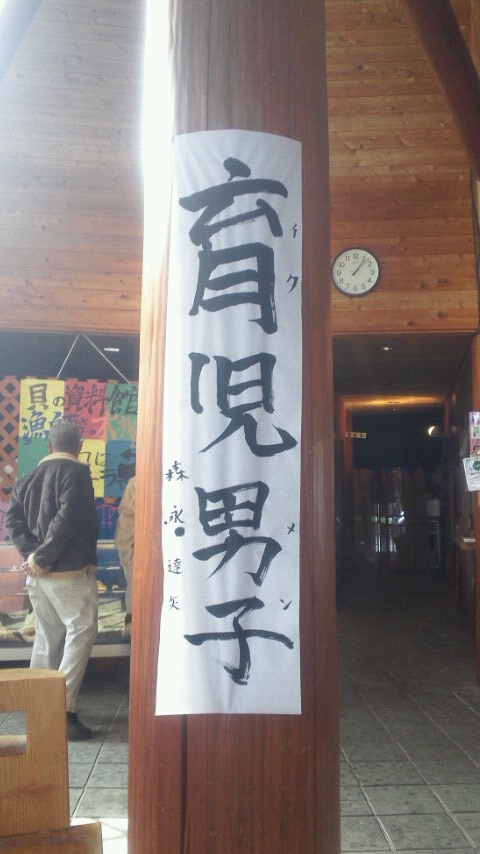 育児男子
イクメン
森永達矢
貝の資料館
漁師